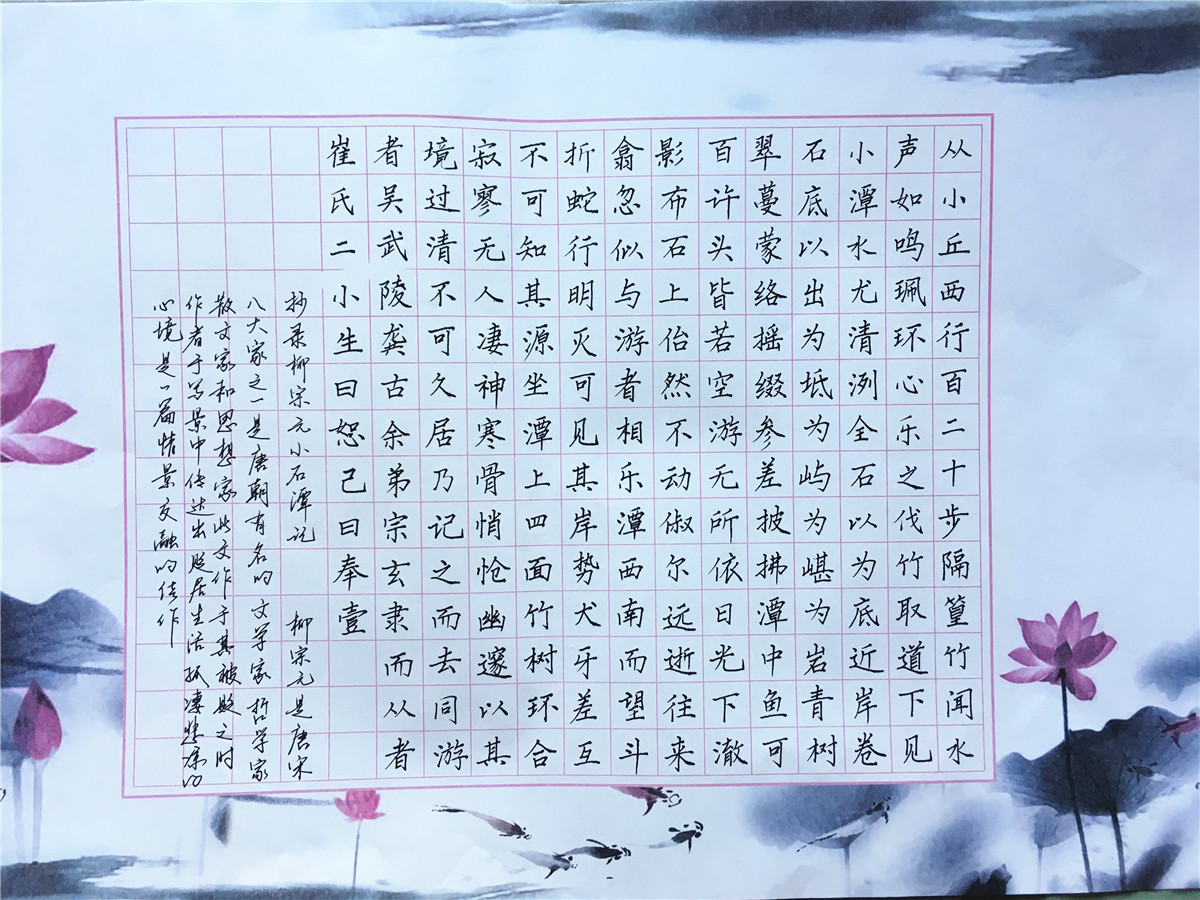 从小丘西行百二十步隔篁竹闻水
声如鸣珮环心乐之伐竹取道下见
小潭水尤清洌全石以为底近岸卷
石底以出为坻为屿为嵁为岩青树
翠蔓蒙络摇缀参差披拂潭中鱼可
百许头皆若空游无所依日光下澈
影布石上佁然不动俶尔远逝往来
翕忽似与游者相乐潭西南而望斗
折蛇行明灭可见其岸势犬牙差互
不可知其源坐潭上四面竹树环合
寂寥无人凄神寒骨悄怆幽邃以其
境过清不可久居乃记之而去同游
者吴武陵龚古余弟宗玄隶而从者
崔氏二小生曰恕己曰奉壹
抄录柳宗元小石潭记 柳宗元是唐宋
八大家之一是唐朝有名的文学家哲学家
散文家和思想家此文作于其被贬之时
作者于写景中传达出贬居生活孤凄悲凉的
心境是一篇情景交融的佳作